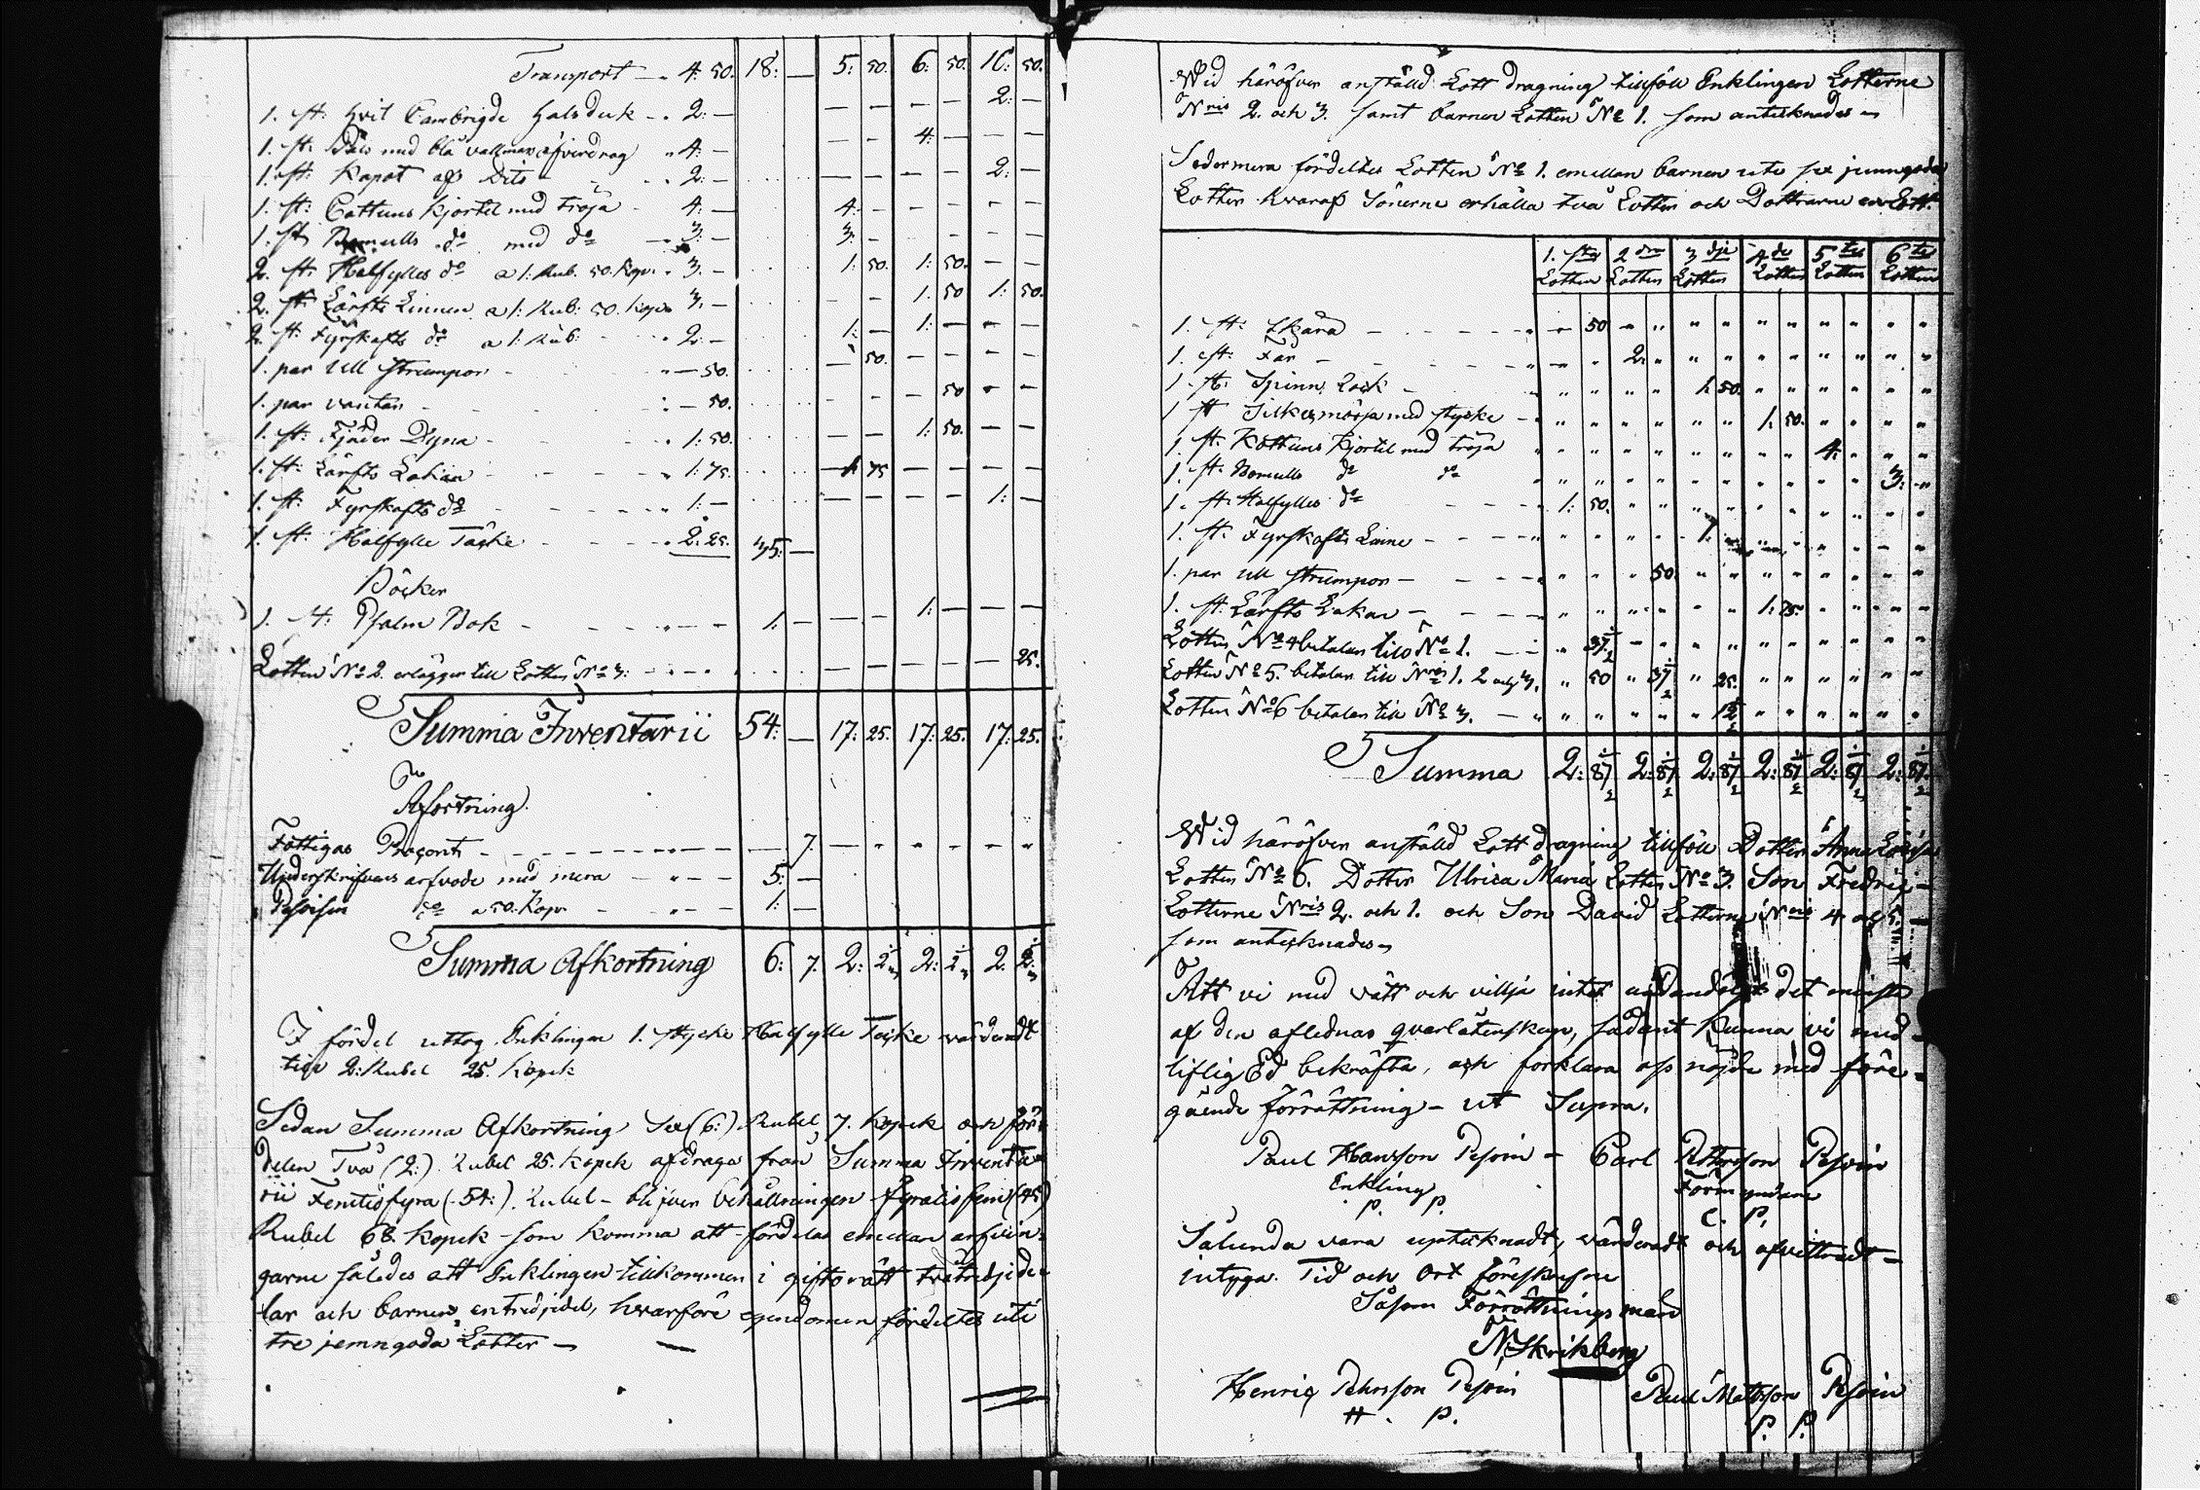 Transport — 4: 50. 18: — 5: 50. 6: 50. 16: 50.
1. st: hvit Cambrigde halsduk — 2: — — — — — 2: —
1. st: Päls med blå vallmars öfverdrag 4: — — — 4: — — —
1. st: Kapot af Dito 2: — — — — — 2: —
1. st: Cattuns kjortel med tröja 4: — 4: — — — — —
1. st: Bomulls do med do 3: — 3: — — — — —
2. st: Halfylles do a 1. Rub. 50. Kop. 3: — 1: 50. 1: 50. — —
2. st: Lärfts Linnen a 1: Rub: 50. Kop. 3: — — — 1: 50 1: 50.
2. st: Fyrskafts do a 1: Rub: 2: — 1: — 1: — — —
1. par Ull strumpor — 50. — 50. — — — —
1. par vantar — 50. — — — 50 — —
1. st: Fjäder Dyna 1: 50. — — 1: 50. — —
1. st: Lärfts Lakan 1: 75. 1: 75 — — — —
1. st: Fyrskafts do 1: — — — — — 1: —
1. st: Halfylle Täcke 2: 25. 35: —
Böcker
1. st: Psalm Bok 1: — — — 1: — — —
Lotten No 2. erlägger till Lotten No 3: — — — — — 25.
Summa Inventarii 54: — 17: 25. 17: 25. 17: 25.
Afkortning.
Fattigas Procent — 7.
Underskrifvens arfvode med mera 5: —
do a 50. Kop. 1: —
Summa Afkortning 6: 7. 2: 2 2: 2 2: 2
I fördel uttog Enklingen 1. stycke Halfylle Täcke värderadt
till 2: Rubel 25. Kopek
Sedan Summa Afkortning Sex (6:) Rubel 7. Kopek och för:
delen Två (2:) Rubel 25. Kopek afdragas från Summa Inventa
rii Femtiofyra (54:) Rubel — blifver behållningen fyratiofem (45)
Rubel 68. Kopek — som komma att fördelas emellan arfvin:
garne således att Enklingen tillkommer i giftorätt två tredjede
lar och barnen en tredjedel, hvarföre egendomen fördeltes uti
tre jemngoda Lotter —
Wid häröfver anställd Lott dragning tillföll Enklingen Lotterne
Nris 2. och 3. samt barnen Lotten No 1. som antecknades —
Sedermera fördeltes Lotten No 1. emellan barnen uti sex jemngoda
Lotter hvaraf Sönerne erhålla två Lotter och Döttrarne en Lott.
1. sta Lotten 2 dra Lotten 3 dje Lotten 4 de Lotten 5 te Lotten 6 te Lotten
1. st: Skära — 50
1. st: Får — 2: "
1. st: Spinn Rock — 1: 50.
1 st Silkes mössa med stycke — 1: 50.
1. st: Kottuns kjortel med tröja 4: "
1. st: Bomulls do do 3: "
1. st: Halfylles do 1: 50.
1. st: Fyrskafts Linne — 1: "
1. par Ull strumpor — 50.
1. st: Lärfts Lakan — 1: 75.
Lotten No 4 betalar till No 1. — 37 1/2
Lotten No 5. betalar till Nris 1. 2 och 3. " 50 " 37 1/2 " 25.
Lotten No 6 betalar till No 3. — 12 1/2
Summa 2: 87 1/2 2: 87 1/2 2: 87 1/2 2: 87 1/2 2: 87 1/2 2: 87 1/2
Wid häröfver anställd Lott dragning tillföll Dotter Anna Lovisa
Lotten No 6. Dotter Ulrica Maria Lotten No 3. Son Fredric —
Lotterne Nris 2. och 1. och Son David Lotterne Nris 4 och 5. —
som antecknades —
Att vi med vätt och vilja intet undandölgt det minsta
af den aflednas qvarlåtenskap, sådant kunna vi med
liflig Ed bekräfta, och förklara oss nöjde med före
gående förrättning — ut Supra.
Paul Hansson — Carl Pettersson
Enkling Förmyndare
P. P. C. P.
Sålunda vara upteknadt, värderadt och afvittradt —
intyga. Tid och Ort föreskrefne
Såsom Förrättningsmän
N. Skrikberg
Henric Pehrsson Paul Mattsson
H. P. P. P.